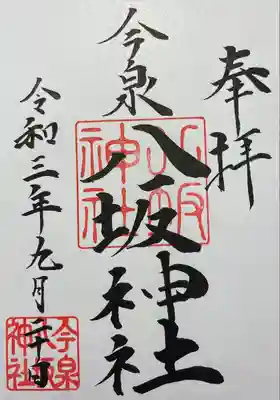 奉拝
今泉
八坂神社
八坂神社
令和三年九月二十日
今泉
神社